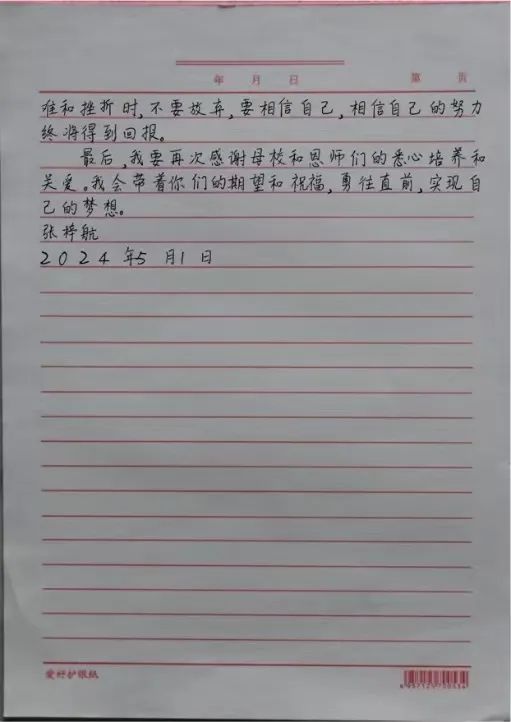 年 月 日 第 页
难和挫折时,不要放弃,要相信自己,相信自己的努力
终将得到回报。
最后,我要再次感谢母校和恩师们的悉心培养和
关爱。我会带着你们的期望和祝福,勇往直前,实现自
己的梦想。
张梓航
2024年5月1日
爱好护眼纸